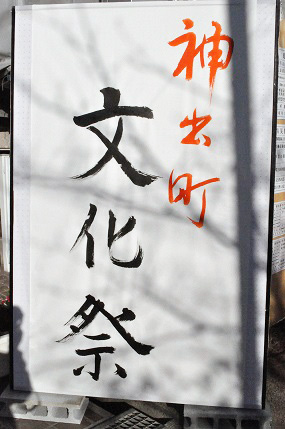 神出町
文化祭